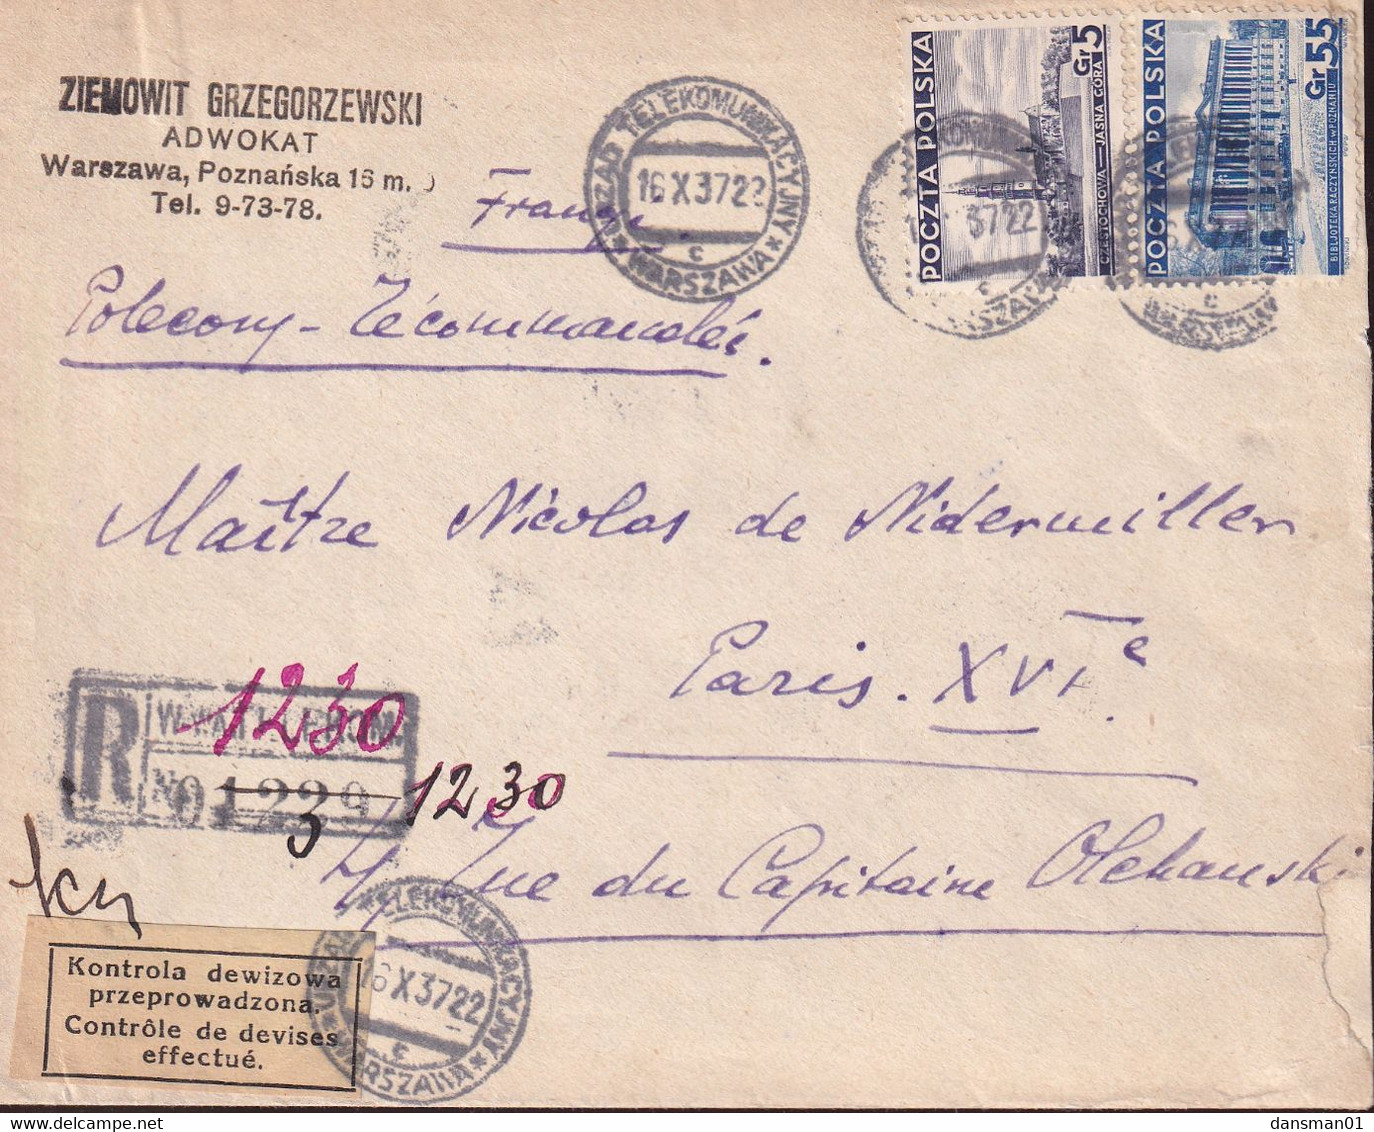 ZIEMOWIT GRZEGORZEWSKI
ADWOKAT
Warszawa, Poznańska 16 m.
Tel. 9-73-78.
Francja
URZĄD TELEKOMUNIKACYJNY
16 X 37 22
c
* WARSZAWA *
POCZTA POLSKA
Gr 5
CZĘSTOCHOWA — JASNA GÓRA
POCZTA POLSKA
Gr 55
BIBLJOTEKA RACZYŃSKICH W POZNANIU
37 22
c
Polecony – Récommandés.
Maître Nicolas de Nidermiller
Paris. XVIe
R
1230
No 01239
3
1230
4, Rue du Capitaine Olchanski
Kontrola dewizowa
przeprowadzona.
Contrôle de devises
effectué.
URZĄD TELEKOMUNIKACYJNY
16 X 37 22
c
* WARSZAWA *
dansman01